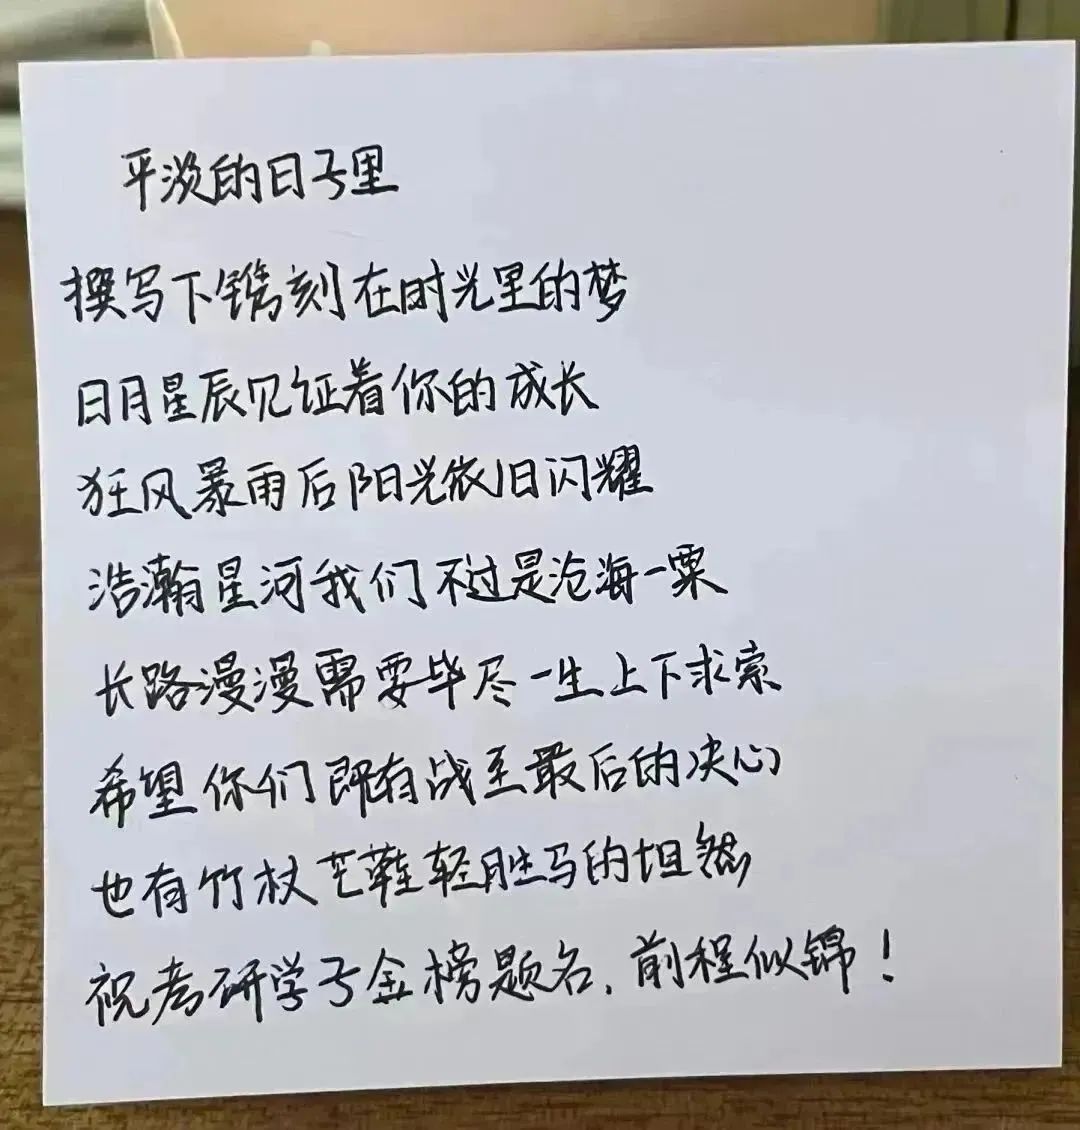 平淡的日子里
撰写下镌刻在时光里的梦
日月星辰见证着你的成长
狂风暴雨后阳光依旧闪耀
浩瀚星河我们不过是沧海一粟
长路漫漫需要毕尽一生上下求索
希望你们即有战至最后的决心
也有竹杖芒鞋轻胜马的坦然
祝考研学子金榜题名,前程似锦!